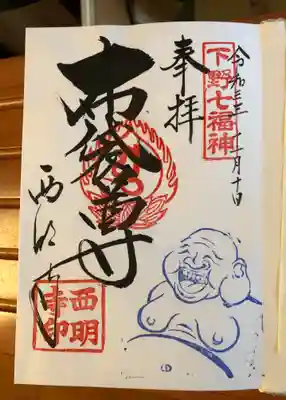 令和三年十一月十日
下野七福神
奉拝
布袋尊
西明寺
西明
寺印